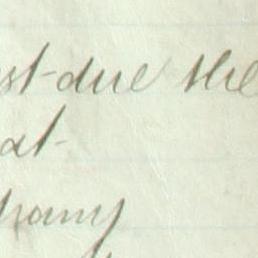 st due the
at
pany